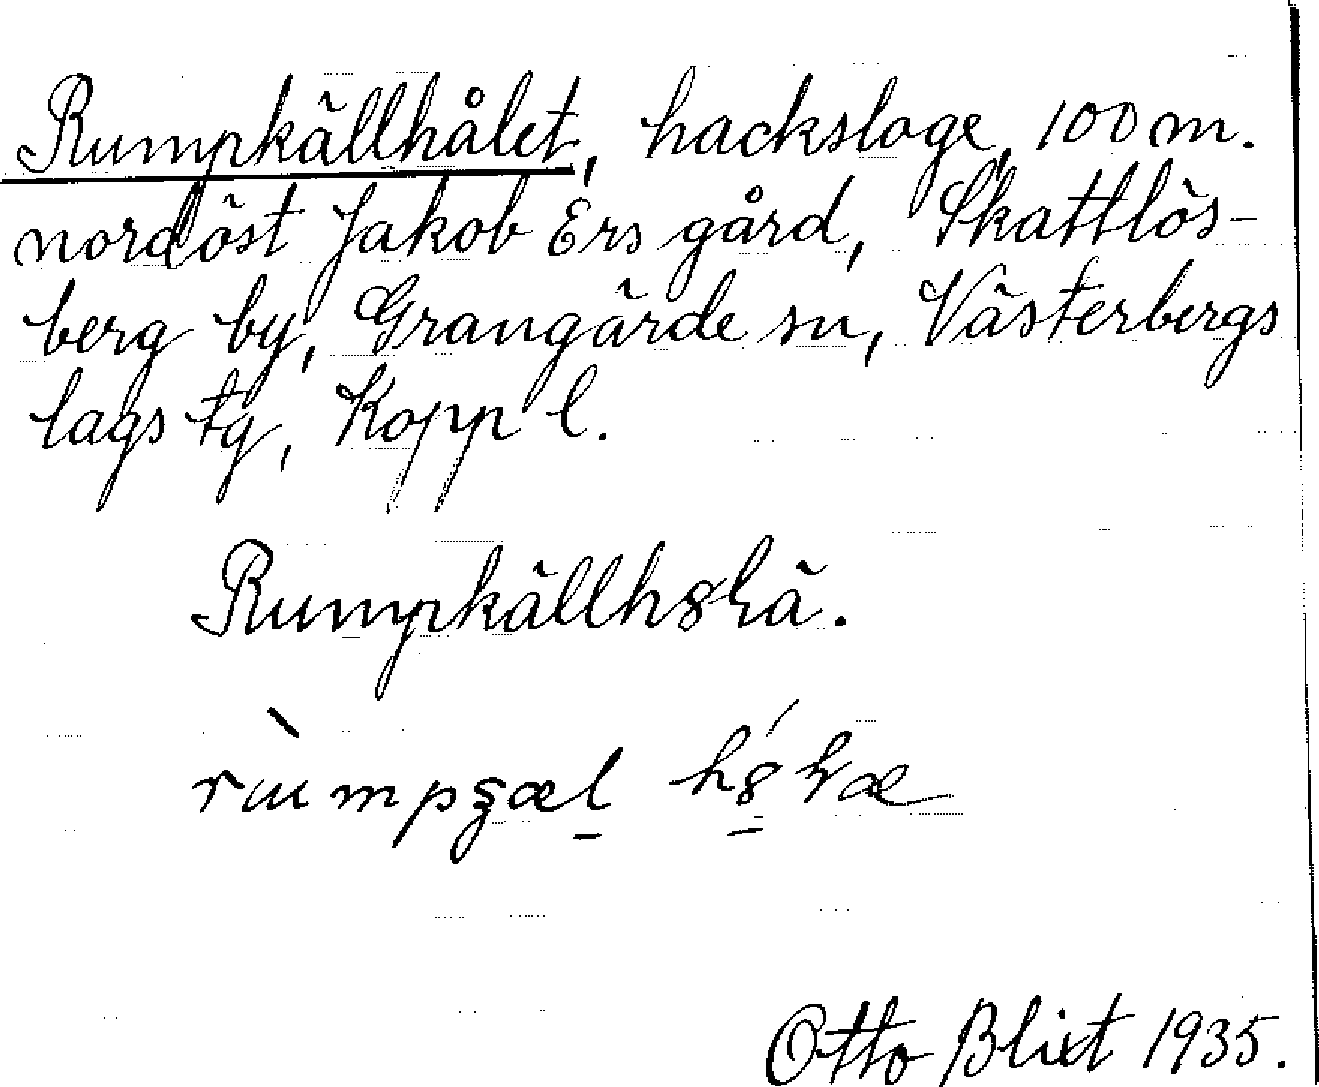 Rumpkällhålet, hacksloge, 100 m.
nordöst Jakob Ers gård, Skattlös-
berg by, Grangärde sn, Västerbergs
lags tg, Kopp l.
Rumpkällh8Lä.
Otto Blixt 1935.